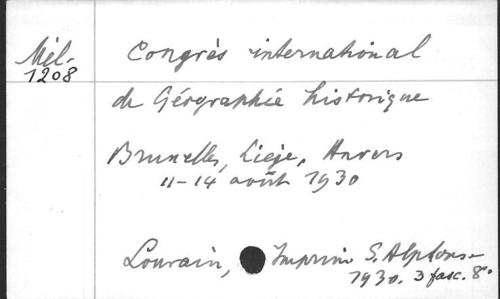 Mél.
1208
Congrès international
de Géographie historique
Bruxelles, Liége, Anvers
11-14 août 1930
Louvain, Imprim S. Alphonse
1930. 3 fasc. 8°.